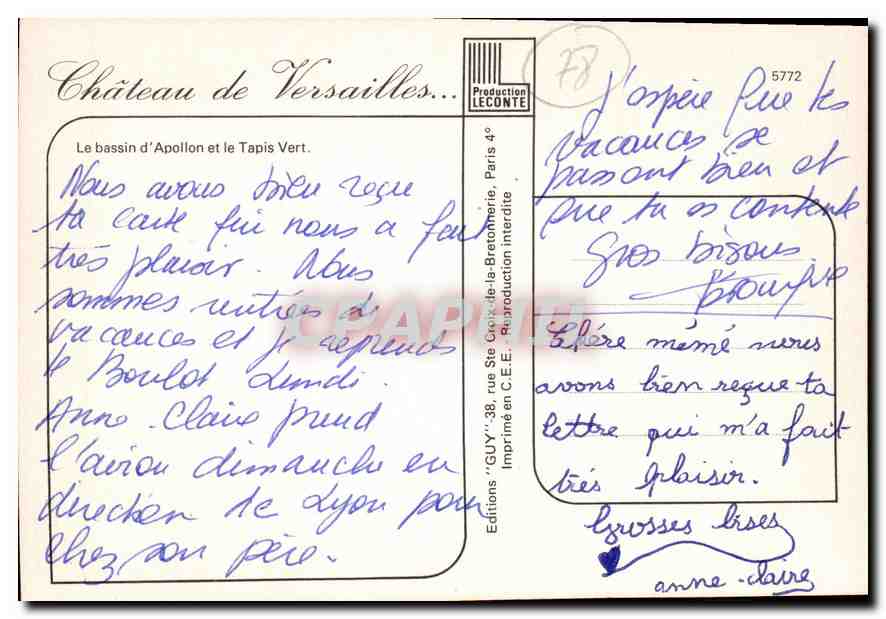 Château de Versailles...
Production
LECONTE
78
5772
Le bassin d'Apollon et le Tapis Vert.
Nous avons bien reçue
ta carte qui nous a fait
très plaisir. Nous
sommes rentrées de
vacances et je reprends
le Boulot Lundi.
Anne-Claire prend
l'avion dimanche en
direction de Lyon pour
chez son père.
Editions "GUY" -38, rue Ste Croix-de-la-Bretonnerie, Paris 4°
Imprimé en C.E.E. Reproduction interdite
J'espère que tes
vacances se
passent bien et
que tu es contente
Gros bisous
Chère mémé nous
avons bien reçue ta
lettre qui m'a fait
très plaisir.
Grosses bises
anne-claire
CPAPHIL